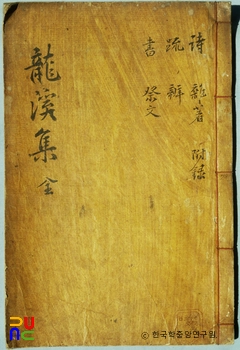 詩 雜著 附錄
疏 辭
書 祭文
龍溪集 全
© 한국학중앙연구원